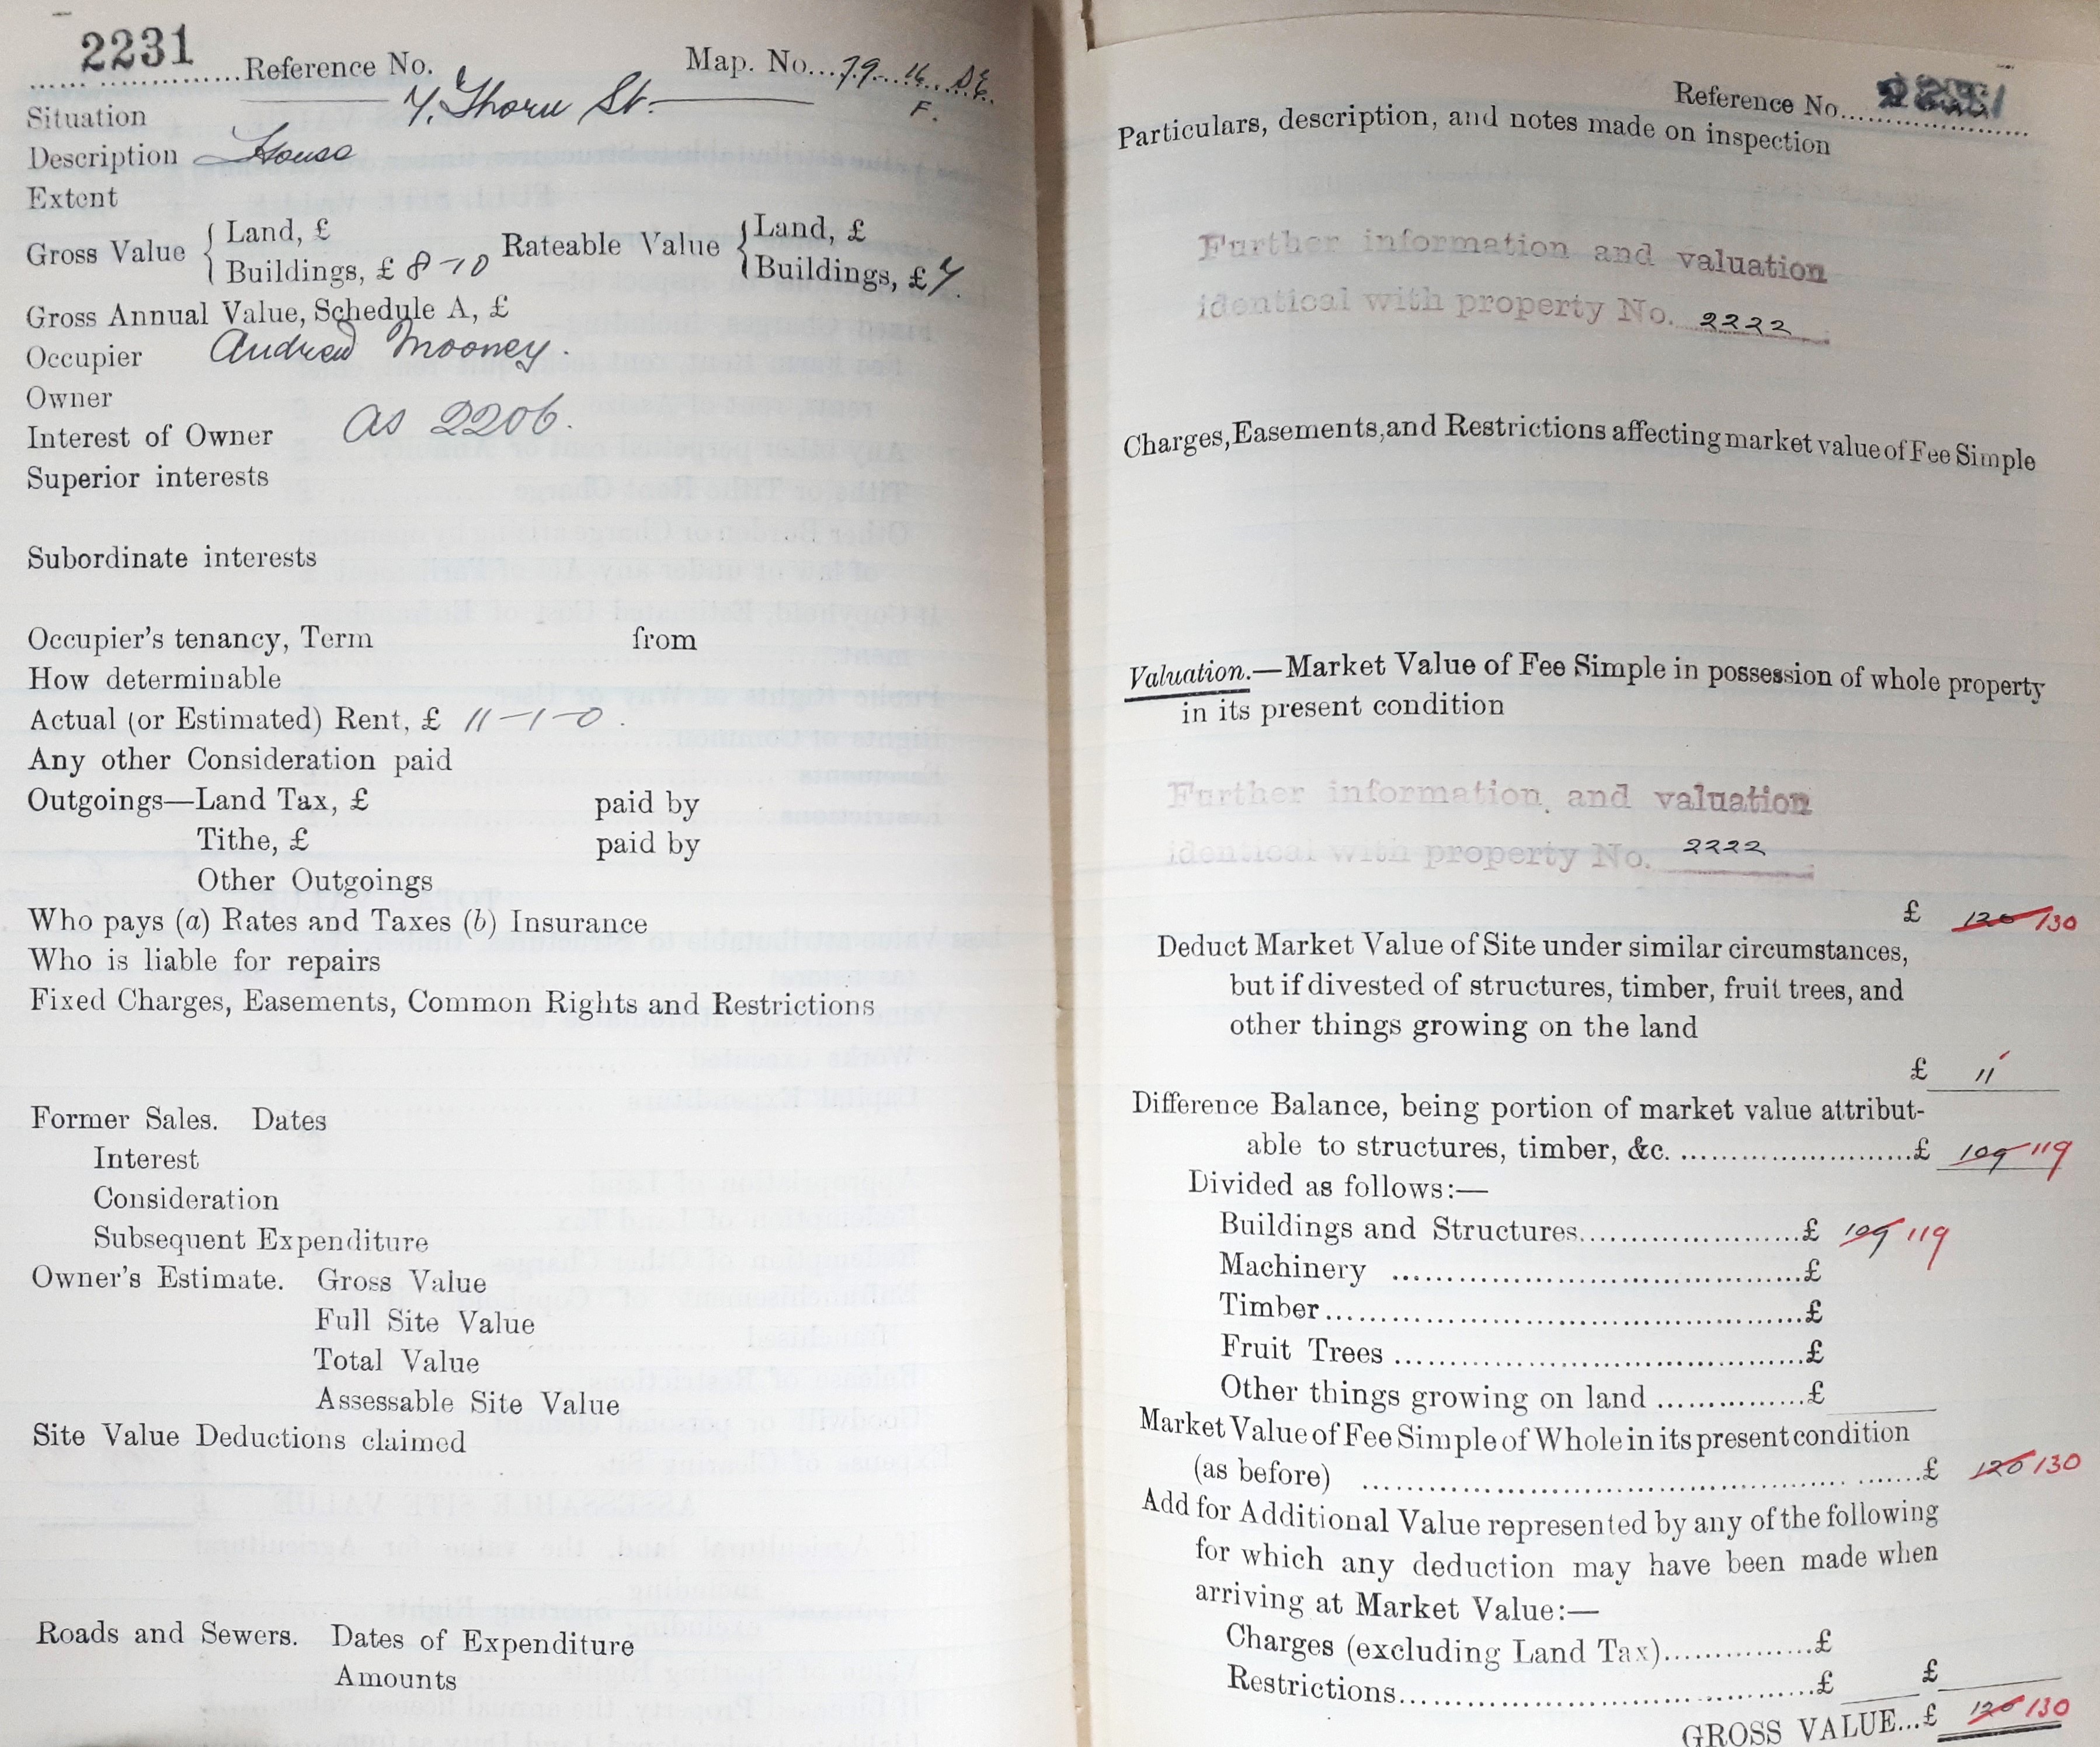 2231 Reference No. Map. No. 79.16.D.E.
F.
Situation 7, Thorn St.
Description House
Extent
Gross Value { Land, £ Rateable Value { Land, £
Buildings, £ 8-10 Buildings, £ 7.
Gross Annual Value, Schedule A, £
Occupier Andrew Mooney.
Owner
Interest of Owner as 2206.
Superior interests
Subordinate interests
Occupier's tenancy, Term from
How determinable
Actual (or Estimated) Rent, £ 11-1-0.
Any other Consideration paid
Outgoings—Land Tax, £ paid by
Tithe, £ paid by
Other Outgoings
Who pays (a) Rates and Taxes (b) Insurance
Who is liable for repairs
Fixed Charges, Easements, Common Rights and Restrictions
Former Sales. Dates
Interest
Consideration
Subsequent Expenditure
Owner's Estimate. Gross Value
Full Site Value
Total Value
Assessable Site Value
Site Value Deductions claimed
Roads and Sewers. Dates of Expenditure
Amounts
Reference No. 2231
Particulars, description, and notes made on inspection
Further information and valuation
identical with property No. 2222
Charges, Easements, and Restrictions affecting market value of Fee Simple
Valuation.—Market Value of Fee Simple in possession of whole property
in its present condition
Further information and valuation
identical with property No. 2222
£ 120 130
Deduct Market Value of Site under similar circumstances,
but if divested of structures, timber, fruit trees, and
other things growing on the land
£ 11
Difference Balance, being portion of market value attribut-
able to structures, timber, &c. £ 109 119
Divided as follows:—
Buildings and Structures £ 109 119
Machinery £
Timber £
Fruit Trees £
Other things growing on land £
Market Value of Fee Simple of Whole in its present condition
(as before) £ 120 130
Add for Additional Value represented by any of the following
for which any deduction may have been made when
arriving at Market Value:—
Charges (excluding Land Tax) £
Restrictions £ £
GROSS VALUE...£ 120 130